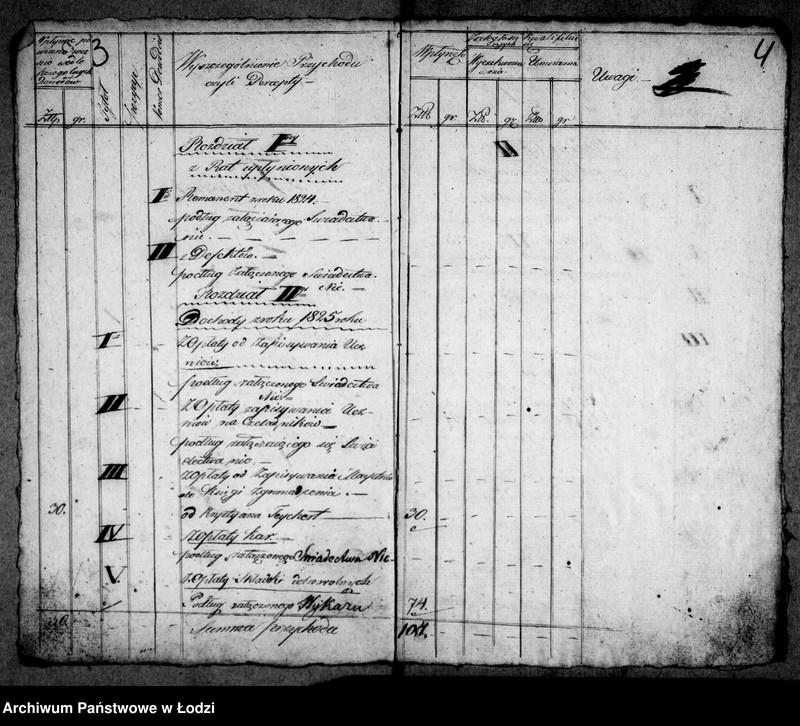 3
4
Tytuł
Pozycya
Numer Dowodu
Wyszczególnienie Przychodu
czyli Percepty
Wpłynęło
Uwagi
Złt. gr.
Złt. gr. Zł. gr. Złt. gr.
Rozdział I
z Rat upłynionych
I Remanent z roku 1824.
podług załączonego Świadectwa
nic.
II z Defektów.
podług załączonego Świadectwa.
Nic.
Rozdział II
Dochody z roku 1825 roku
I Z Opłaty od zapisywania Ucz
niów.
podług załączonego Świadectwa
Nic
II Z Opłaty zapisywania Ucz
niów na Czeladników
podług załączającego się Świa
dectwa nic.
III Z Opłaty od Zapisywania Maystrów
do Księgi Zgromadzenia.
30. od Krystyana 30.
IV Z Opłaty kar.
podług załączonego Świadectwa Nic
V. Z Opłaty Składki dobrowolnych
Podług załączonego Wykazu 74.
30. Summa przychodu 104.
Archiwum Państwowe w Łodzi